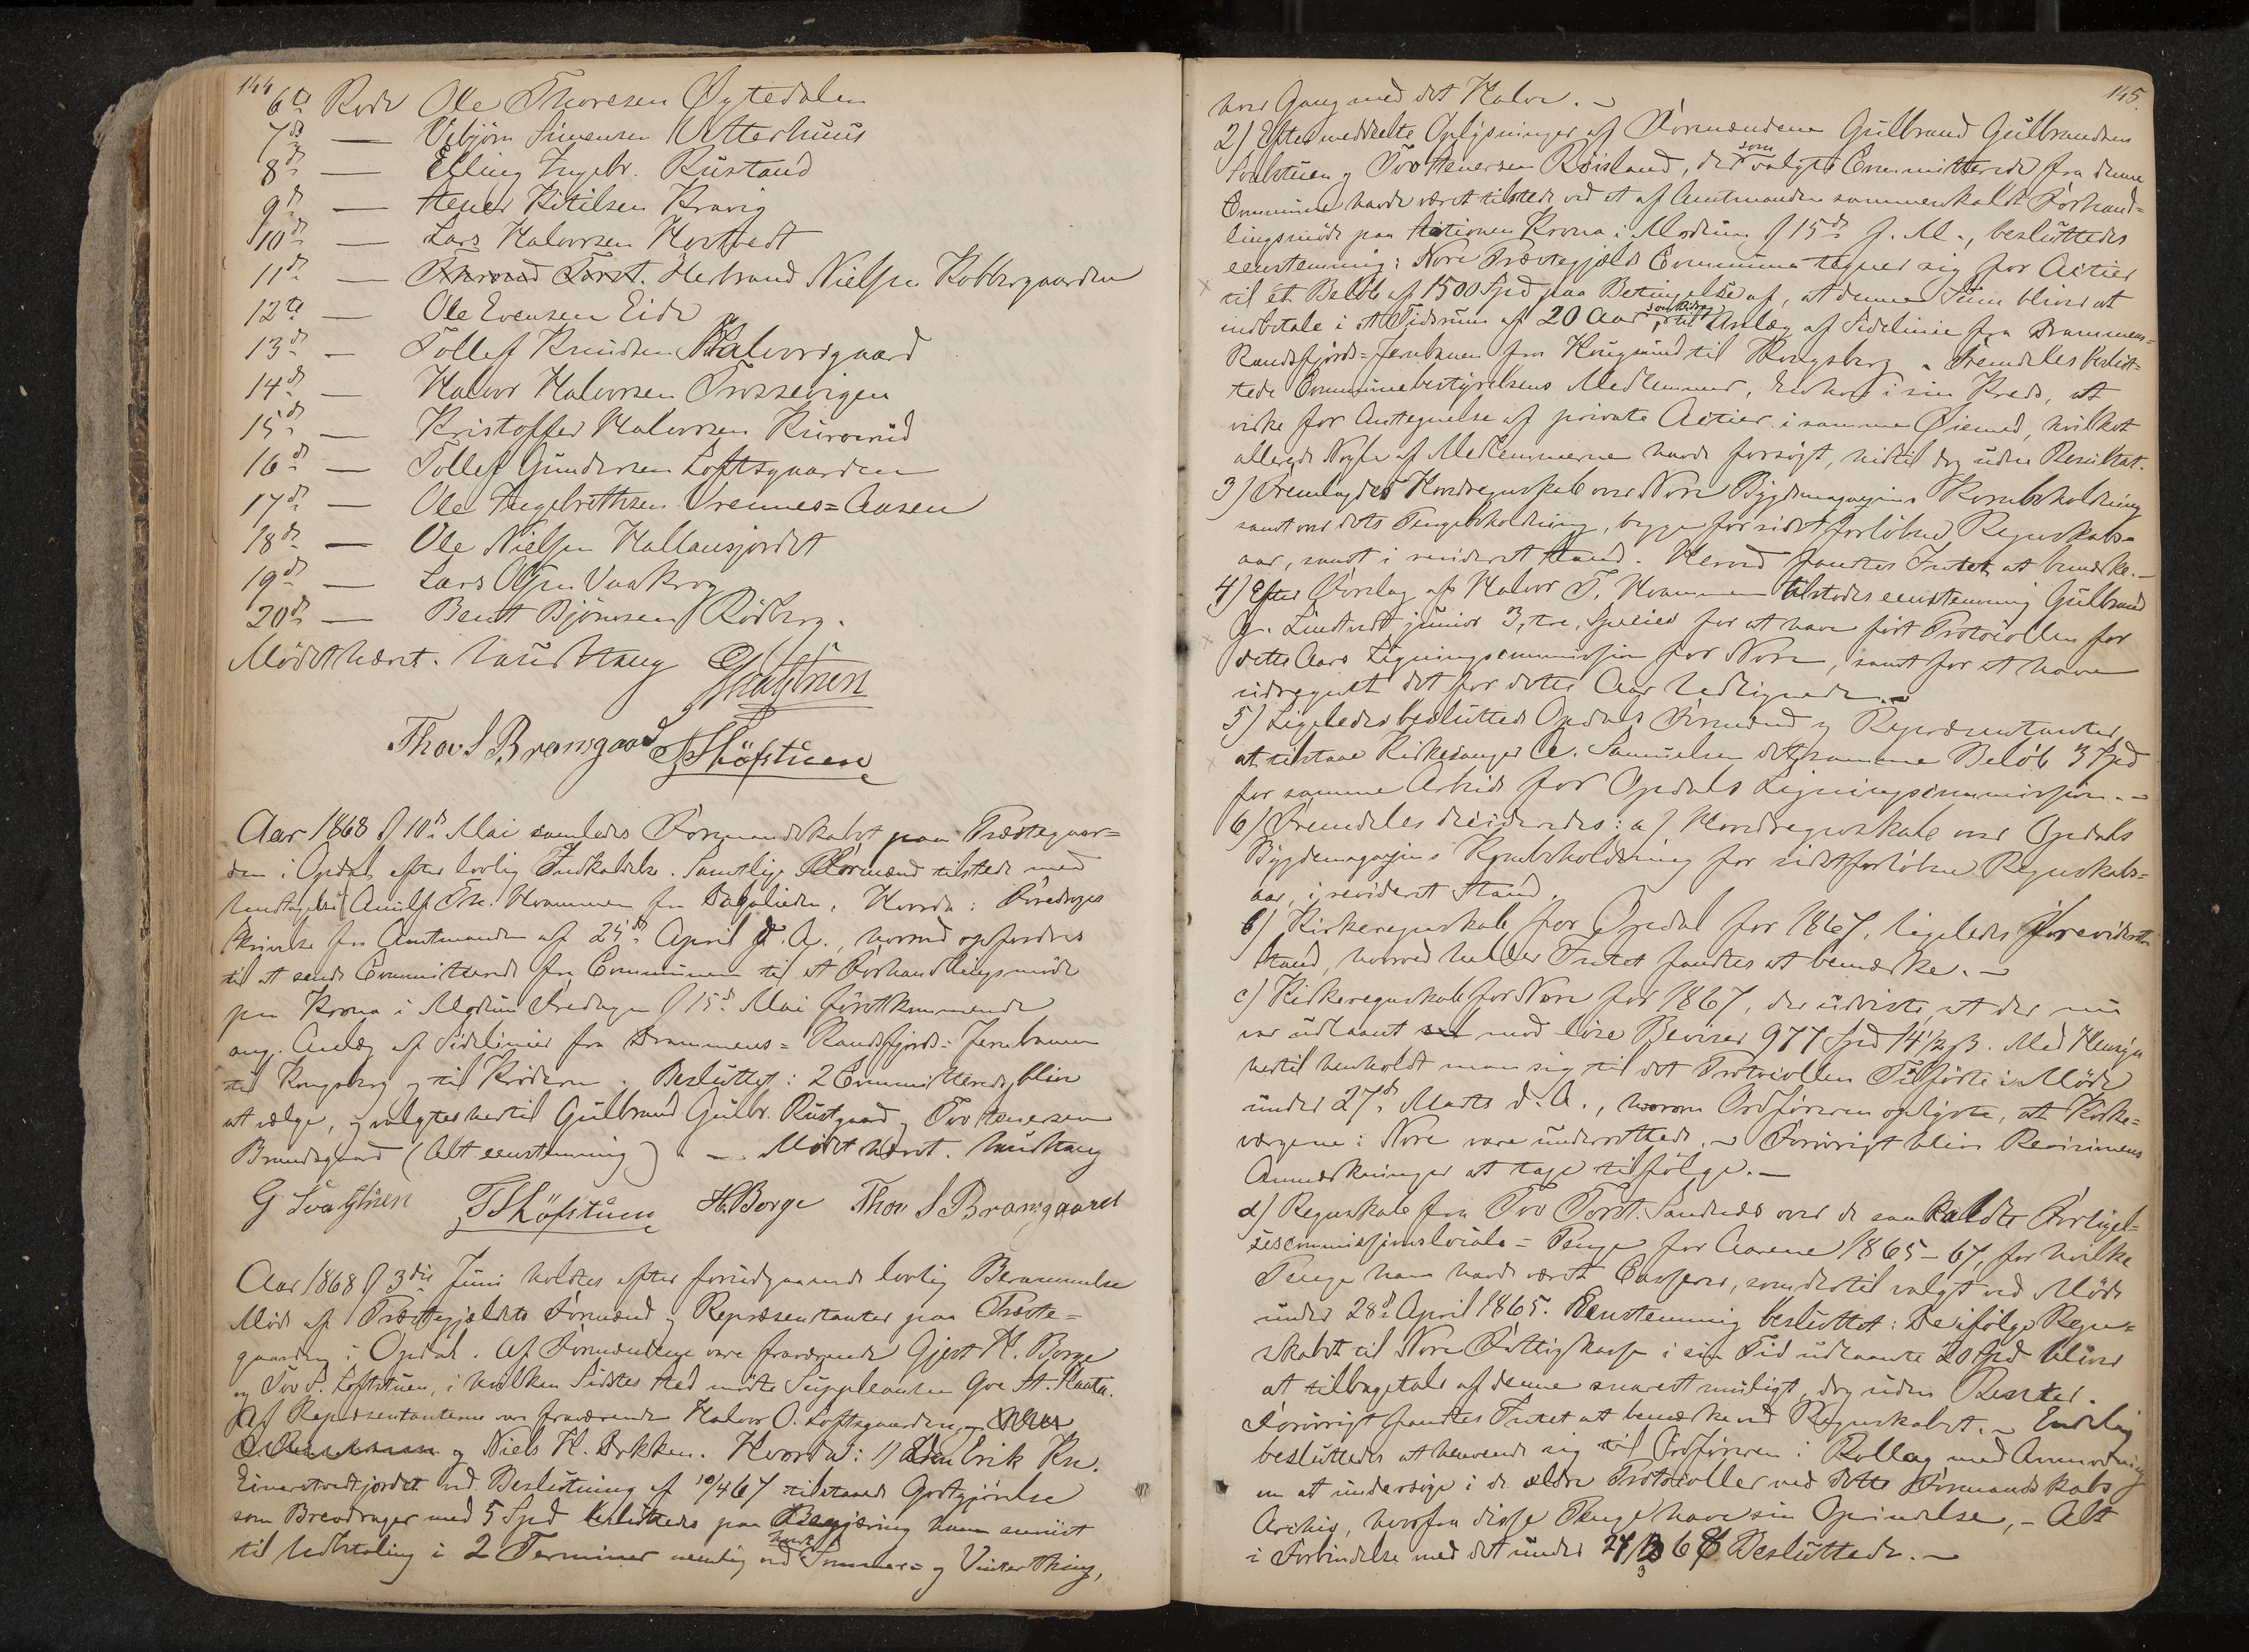 144
6te Rode Ole Thoresen Øytedalen
7de — Vebjørn Simensen Vetterhuus
8de — Elling Ingebr. Rustand
9de — Stener Ketilsen Kravig
10de — Lars Halvorsen Hvertvedt
11de — Thrond Torst. Herbrand Nielsen Kobbergaarden
12te — Ole Evensen Eide
13de — Tollef Knudsen Halvorsgaard
14de — Halvor Halvorsen Trossevigen
15de — Kristoffer Halvorsen
16de — Tollef Gundersen Loftsgaarden
17de — Ole Engebrethsen Vrennes-Aasen
18de — Ole Nielsen Hallansjordet
19de — Lars Olsen Vaakrog
20de — Bent Bjørnsen Rødberg.
Mødet hævet.
Thor S Bramsgaard T S Löfstuen
Aar 1868 d 10de Mai samledes Formandskabet paa Præstegaar-
den i Opdal, efter lovlig Indkaldelse. Samtlige Formænd tilstede med
Undtagelse af Th. Hvammen fra Dagalien. Hvorda: Foredroges
Skrivelse fra Amtmanden af 25de April d. A., hvorved opfordres
til at sende Committerede fra Communen til et Forhandlingsmøde
paa Krona i Modum Fredagen d 15de Mai førstkommende
ang. Anlæg af Sidelinier fra Drammens-Randsfjords-Jernbanen
til Kongsberg og til Krøderen. Besluttet: 2 Committerede bliver
at vælge, og valgtes hertil Gulbrand Gulbr. Rustgaard og Tov Stenersen
Brundsgaard (Alt eenstemmig). — Mødet hævet.
G Svartstuen T S Löfstuen H. Borge Thor S Bramsgaard
Aar 1868 d 3die Juni holdtes efter forudgaaende lovlig Berammelse
Møde af Præstegjeldets Formænd og Repræsentanter paa Præste-
gaarden i Opdal. Af Formændene vare fraværende Gjert H. Borge
og Tov S. Loftstuen, i hvilken Sidstes Sted mødte Suppleanten
Af Repræsentanterne var fraværende Halvor O. Loftsgaarden,
og Niels H. Bekken. Hvorda: 1) Den Erik Kn.
Einarstvedtjordet ved Beslutning af 10/4 67 tilstaaede Godtgjørelse
som Brevdrager med 5 Spd besluttedes paa Begjæring ham anviist
til Udbetaling i 2 Terminer nemlig ved hvert Sommer- og Vinterthing,
145.
hver Gang med det Halve. —
2) Efter meddeelte Oplysninger af Formændene Gulbrand Gulbrandsen
Svartstuen og Tov Stenersen Røisland, der som valgte Committerede fra denne
Commune havde været tilstede ved et af Amtmanden sammenkaldt Forhand-
lingsmøde paa Stationen Krona i Modum d 15de f. M., besluttedes
eenstemmig: Nore Præstegjælds Commune tegner sig for Actier
til et Beløb af 1500 Spd paa Betingelse af, at denne Sum bliver at
indbetale i et Tidsrum af 20 Aar, som Bidrag til Anlæg af Sidelinie fra Drammens-
Randsfjords-Jernbanen fra Hougsund til Kongsberg. Fremdeles beslut-
tede Communebestyrelsens Medlemmer, Enhver i sin Kreds, at
virke for Antegnelse af private Actier i samme Øiemed, hvilket
allerede Nogle af Medlemmerne havde forsøgt, hidtil dog uden Resultat.
3) Fremlagdes Hovedregnskab over Nore Bygdemagazins Kornbeholdning
samt over dets Pengebeholdning, begge for sidst forløbne Regnskabs-
aar, samt i revideret Stand. Herved fandtes Intet at bemærke. —
4) Efter Forslag af Halvor T. Hvammen tilstodes eenstemmig Gulbrand
G. Lindtvedt junior 3, tre, Species for at have ført Protocollen for
dette Aars Ligningscommission for Nore, samt for at have
udregnet det for dette Aar Udlignede. —
5) Ligeledes besluttede Opdals Formænd og Repræsentanter,
at tilstaae Kirkesanger A. Samuelsen det samme Beløb 3 Spd
for samme Arbeide for Opdals Ligningscommission. —
6) Fremdeles decideredes: a) Hovedregnskab over Opdals
Bygdemagazins Kornbeholdning for sidstforløbne Regnskabs-
aar, i revideret Stand.
b) Kirkeregnskab for Opdal for 1867, ligeledes i revideret
Stand, hvorved heller Intet fandtes at bemærke. —
c) Kirkeregnskab for Nore for 1867, der udviste, at der nu
var udlaant mod løse Beviser 977 Spd 14½ ß. Med Hensyn
hertil henholdt man sig til det Protocollen Tilførte i Møde
under 27de Marts d. A., hvorom Ordføreren oplyste, at Kirke-
værgerne i Nore vare underrettede. — Forøvrigt bliver Revisionens
Anmærkninger at tage tilfølge. —
d) Regnskab fra Tov Torst. Sandnæs over de saakaldte Forligel-
sescommissionslocale-Penge for Aarene 1865-67, for hvilke
Penge han havde været Casserer, som dertil valgt ved Møde
under 28de April 1865. Eenstemmig besluttet: De ifølge Regn-
skabet til Nore Fattigkasse i sin Tid udlaante 20 Spd bliver
at tilbagetale af denne snarest muligt, dog uden Renter.
Forøvrigt fandtes Intet at bemærke ved Regnskabet. — Endelig
besluttedes at henvende sig til Ordføreren i Rollag med Anmodning
om at undersøge i de ældre Protocoller ved dette Formandskabs
Archiv, hvorfra disse Penge have sin Oprindelse, — Alt
i Forbindelse med det under 27/3 68 Besluttede. —